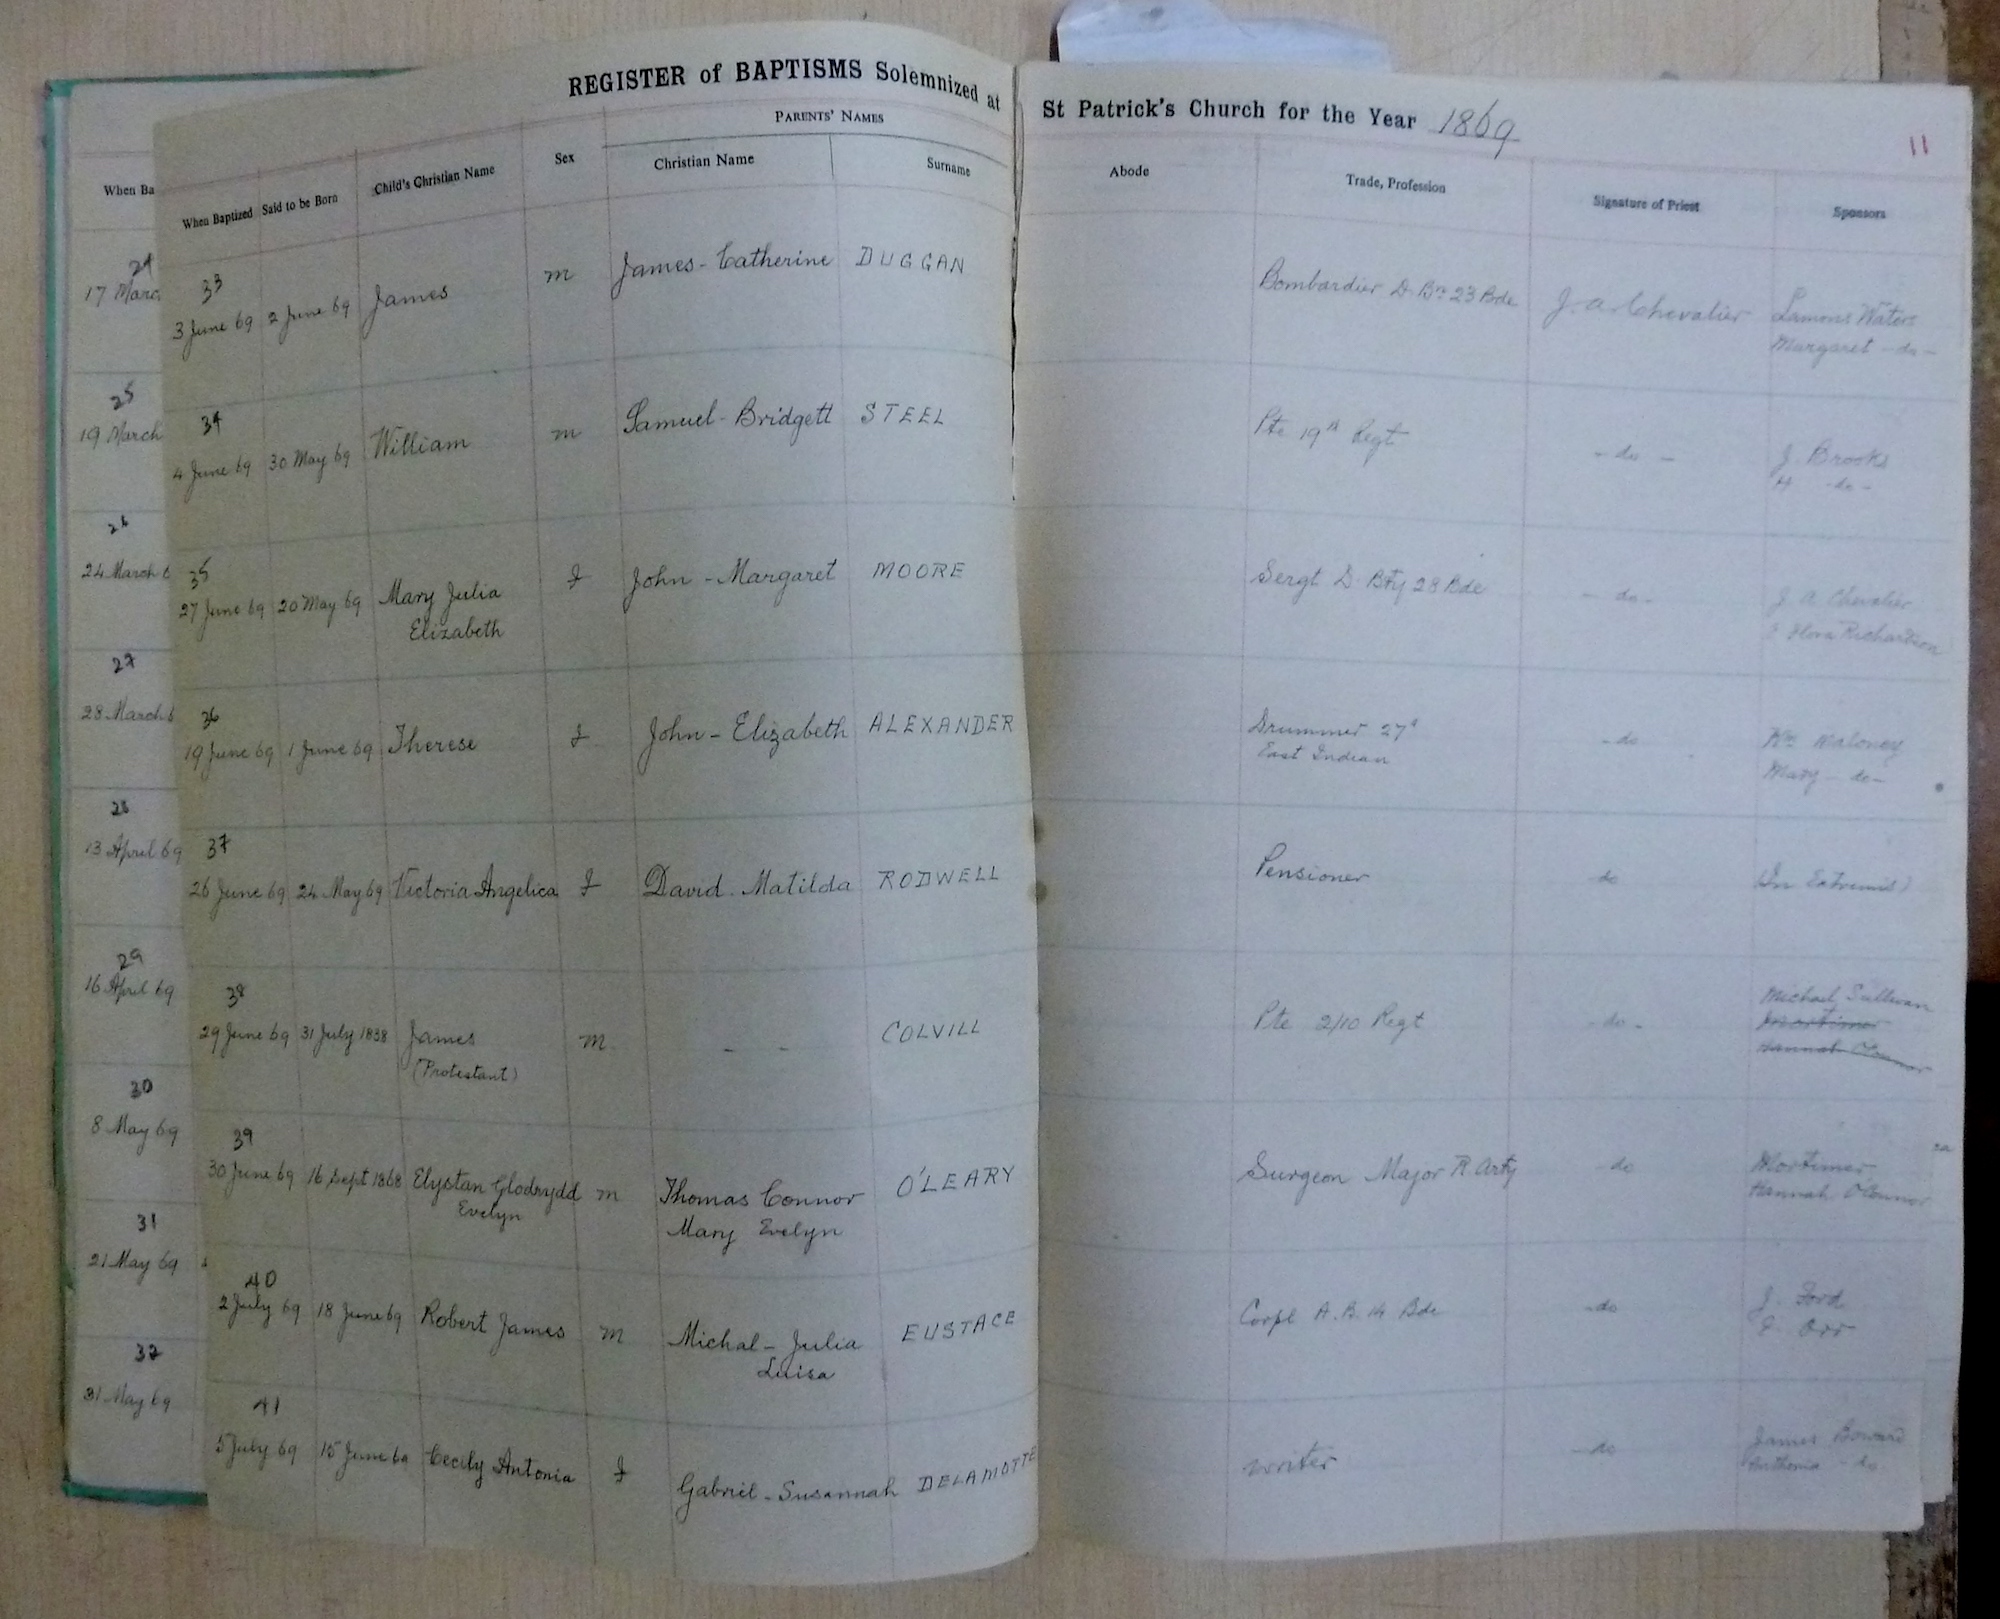 REGISTER of BAPTISMS Solemnized at St Patrick's Church for the Year 1869
11
PARENTS' NAMES
When Baptized Said to be Born Child's Christian Name Sex Christian Name Surname Abode Trade, Profession Signature of Priest Sponsors
When Ba
24
17 Marc
25
19 March
26
24 March 6
27
28 March 6
28
13 April 69
29
16 April 69
30
8 May 69
31
21 May 69
32
31 May 69
33
3 June 69 2 June 69 James m James - Catherine DUGGAN Bombardier D. By 23 Bde J. A. Chevalier Lamons Waters
Margaret - do -
34
4 June 69 30 May 69 William m Samuel - Bridgett STEEL Pte 19th Regt - do - J. Brooks
H - do -
35
27 June 69 20 May 69 Mary Julia f John - Margaret MOORE Sergt D. Bty 28 Bde - do - J A Chevalier
Elizabeth Flora Richardson
36
19 June 69 1 June 69 Therese f John - Elizabeth ALEXANDER Drummer 27th - do Wm Maloney
East Indian Mary - do -
37
26 June 69 24 May 69 Victoria Angelica f David. Matilda RODWELL Pensioner do (In Extremis)
38
29 June 69 31 July 1838 James m. - - COLVILL Pte 2/10 Regt - do - Michael Sullivan
(Protestant) Mortimer
Hannah O'Connor
39
30 June 69 16 Sept 1868 Elystan Glodrydd m Thomas Connor O'LEARY Surgeon Major R Arty - do Mortimer
Evelyn Mary Evelyn Hannah O'Connor
40
2 July 69 18 June 69 Robert James m Michal - Julia EUSTACE Corpl A. B. 14 Bde - do J. Ford
Luisa Orr
41
5 July 69 15 June 69 Cecily Antonia f Gabriel - Susannah DELAMOTTE writer - do James Boward
Anthonia - do